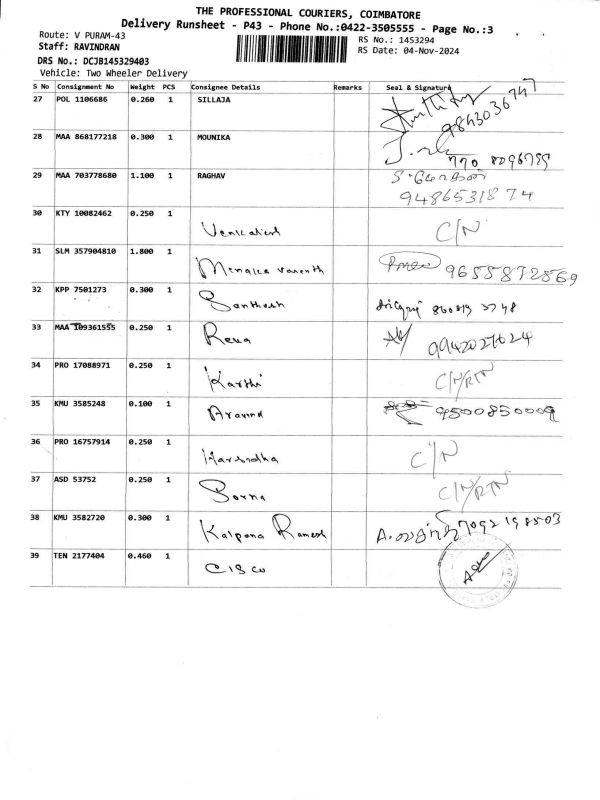 THE PROFESSIONAL COURIERS, COIMBATORE
Delivery Runsheet - P43 - Phone No.:0422-3505555 - Page No.:3
Route: V PURAM-43
RS No.: 1453294
Staff: RAVINDRAN
RS Date: 04-Nov-2024
DRS No.: DCJB145329403
Vehicle: Two Wheeler Delivery
S No Consignment No Weight PCS Consignee Details Remarks Seal & Signature
27 POL 1106686 0.260 1 SILLAJA 9843036747
28 MAA 868177218 0.300 1 MOUNIKA
29 MAA 703778680 1.100 1 RAGHAV
9486531874
30 KTY 10082462 0.250 1 Venkatesh C/N
31 SLM 357904810 1.800 1 9655872569
32 KPP 7501273 0.300 1 Santhosh
33 MAA 109361555 0.250 1 Rena
34 PRO 17088971 0.250 1 Karthi C/N/RTN
35 KMU 3585248 0.100 1 Aravind 9500850009
36 PRO 16757914 0.250 1 Harsidha C/N
37 ASD 53752 0.250 1 C/N/RTN
38 KMU 3582720 0.300 1 Kalpana Ramesh 7092198503
39 TEN 2177404 0.460 1 CISCO